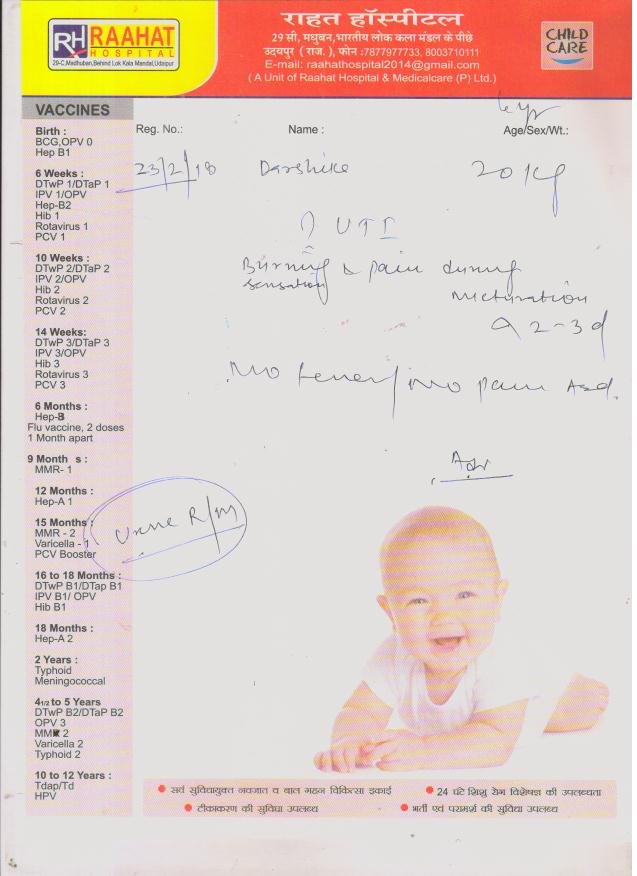 RH RAAHAT
HOSPITAL
29-C,Madhuban,Behind Lok Kala Mandal,Udaipur
राहत हॉस्पीटल
29 सी, मधुबन,भारतीय लोक कला मंडल के पीछे
उदयपुर ( राज. ), फोन :7877977733, 8003710111
E-mail: raahathospital2014@gmail.com
( A Unit of Raahat Hospital & Medicalcare (P) Ltd.)
CHILD
CARE
VACCINES
Birth :
BCG,OPV 0
Hep B1
6 Weeks :
DTwP 1/DTaP 1
IPV 1/OPV
Hep-B2
Hib 1
Rotavirus 1
PCV 1
10 Weeks :
DTwP 2/DTaP 2
IPV 2/OPV
Hib 2
Rotavirus 2
PCV 2
14 Weeks:
DTwP 3/DTaP 3
IPV 3/OPV
Hib 3
Rotavirus 3
PCV 3
6 Months :
Hep-B
Flu vaccine, 2 doses
1 Month apart
9 Month s :
MMR- 1
12 Months :
Hep-A 1
15 Months :
MMR - 2
Varicella - 1
PCV Booster
16 to 18 Months :
DTwP B1/DTap B1
IPV B1/ OPV
Hib B1
18 Months :
Hep-A 2
2 Years :
Typhoid
Meningococcal
4 1/2 to 5 Years
DTwP B2/DTaP B2
OPV 3
MMR 2
Varicella 2
Typhoid 2
10 to 12 Years :
Tdap/Td
HPV
Reg. No.: Name : Age/Sex/Wt.:
23/2/18 Darshike 20 kg
UTI
Burning & pain during
sensation micturation
2-3d
No fever/No pain Abd.
Adv
Urine R/M
सर्व सुविधायुक्त नवजात व बाल गहन चिकित्सा इकाई
24 घंटे शिशु रोग विशेषज्ञ की उपलब्धता
टीकाकरण की सुविधा उपलब्ध
भर्ती एवं परामर्श की सुविधा उपलब्ध